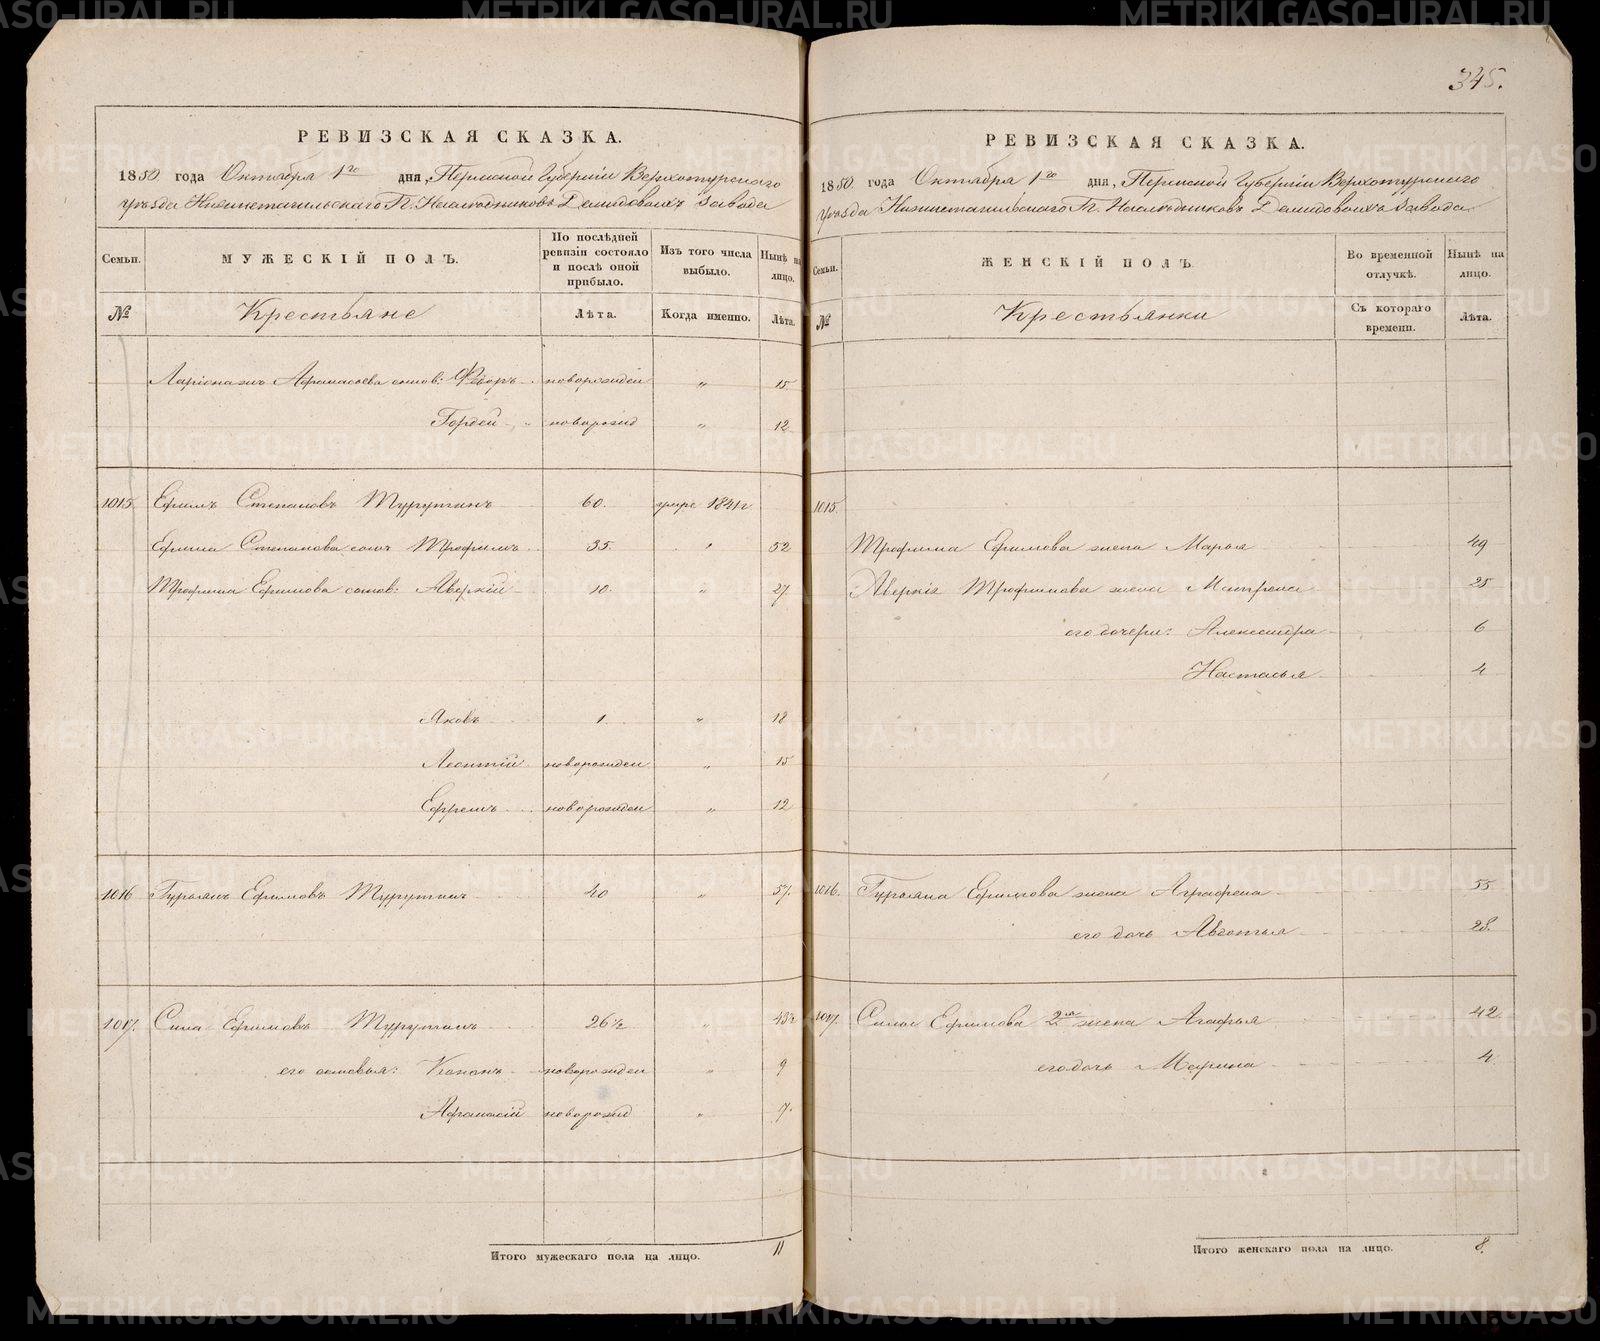 345.
РЕВИЗСКАЯ СКАЗКА.
1850. года Октября 1го дня, Пермской Губерніи Верхотурскаго
Уѣзда Нижнетагильскаго Г. Наслѣдниковъ Демидовыхъ Завода
Семьи.
МУЖЕСКІЙ ПОЛЪ.
По послѣдней ревизіи состояло и послѣ оной прибыло.
Изъ того числа выбыло.
Нынѣ на лицо.
№
Крестьяне
Лѣта.
Когда именно.
Лѣта.
Афанасьева сынов: Ѳедоръ новорожден " 15
Гордей новорожд " 12
1015 Ефимъ Степановъ 60. умре 1841г
Ефима Степанова сынъ Трофимъ 35. " 52
Трофима Ефимова сынов: Аверкій 10. " 27
Яковъ 1. " 18
Леонтій новорожден " 15
Ефремъ новорожден " 12
1016 Гурьянъ Ефимовъ 40 " 57.
1017. Сила Ефимовъ 26½ " 43½
его сыновья: Кононъ новорожден " 9
Афанасій новорожд " 7.
Итого мужескаго пола на лицо. 11
РЕВИЗСКАЯ СКАЗКА.
1850. года Октября 1го дня, Пермской Губерніи Верхотурскаго
Уѣзда Нижнетагильскаго Г. Наслѣдниковъ Демидовыхъ Завода
Семьи.
ЖЕНСКІЙ ПОЛЪ.
Во временной отлучкѣ.
Нынѣ на лицо.
№
Крестьянки
Съ котораго времени.
Лѣта.
1015.
Трофима Ефимова жена Марья 49
Аверкія Трофимова жена Матрена 25
его дочери: Александра 6
Настасья 4
1016. Гурьяна Ефимова жена Аграфена 55
его дочь Авдотья 28.
1017. Силы Ефимова 2ая жена Агафья 42
его дочь Марина 4
Итого женскаго пола на лицо. 8.
METRIKI.GASO-URAL.RU